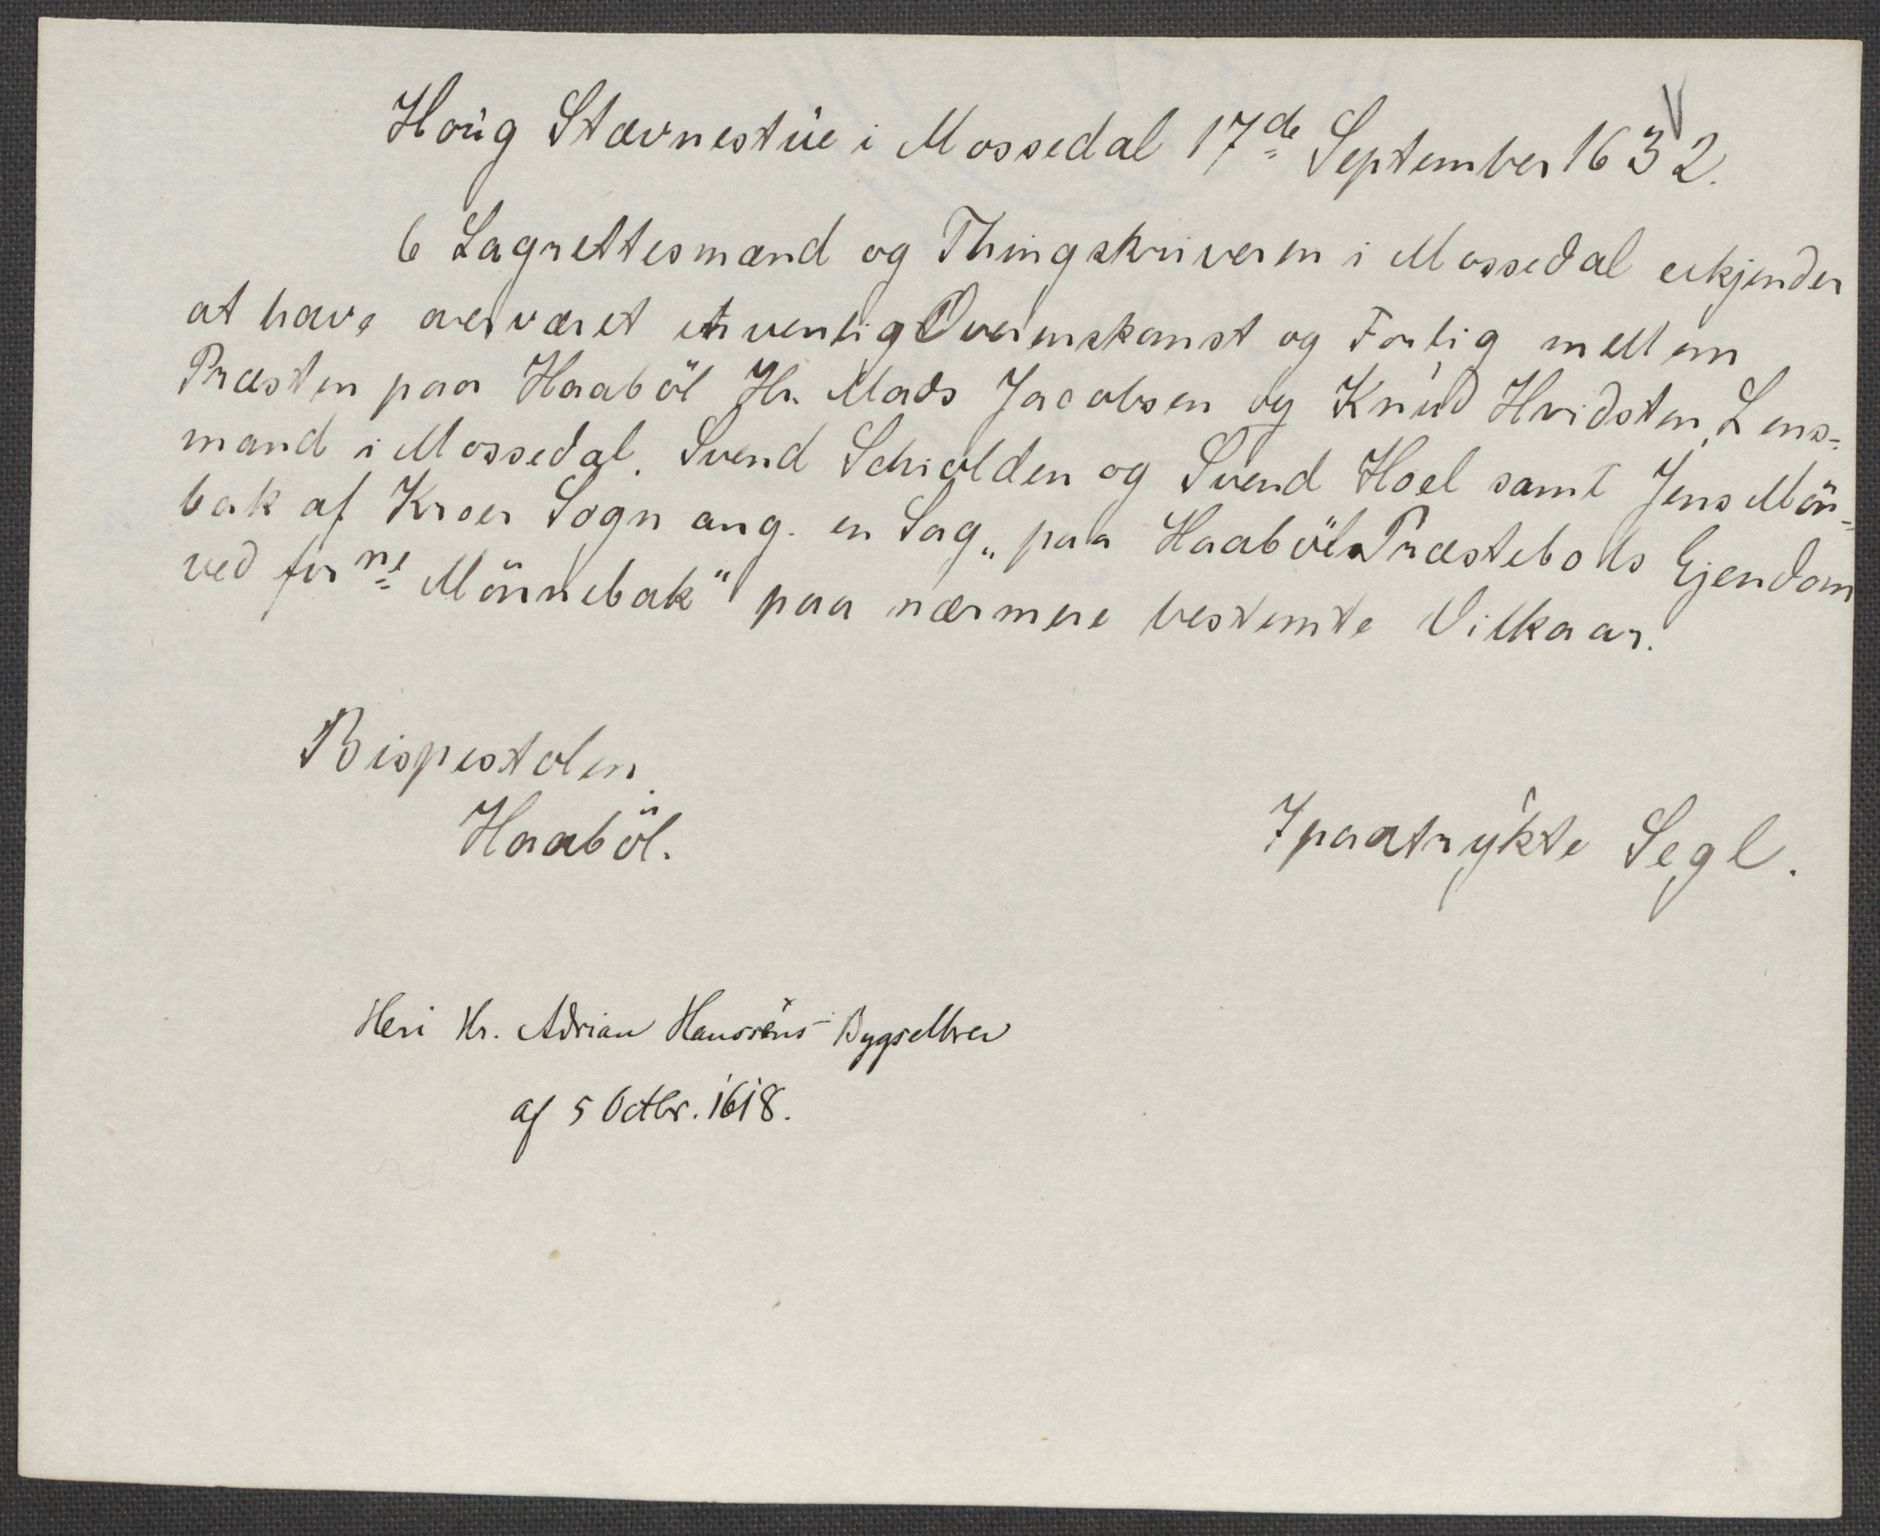 Houg Stævnestue i Mossedal 17de September 1632.
6 Lagrettesmænd og Thingskriveren i Mossedal erkjender
at have overværet et venlig Overenskomst og Forlig mellem
Præsten paa Haaböl Hr. Mads Jacobsen og Knud Hvidsten, Lens=
mand i Mossedal, Svend Schiolden og Svend Hoel samt Jens Mön=
bak af Kroer Sogn ang. en Sag „paa Haaböl Præstebols Ejendom
ved forne Mönnebak" paa nærmere bestemte Vilkaar.
Bispestolen.
Haaböl.
7 paatrykte Segl.
Heri Hr. Adrian Hanssens Bygselbrev
af 5 Octbr. 1618.